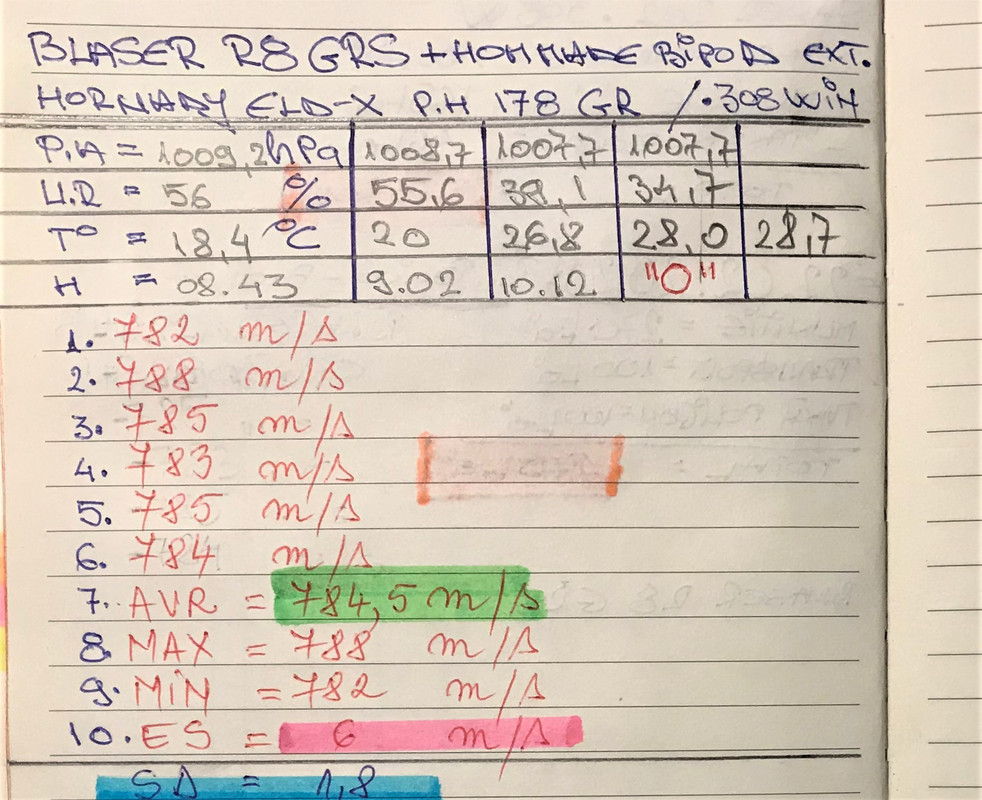 BLASER R8 GRS + HOMMADE BIPOD EXT.
HORNADY ELD-X P.H 178 GR /.308 WIN
P.A = 1009,2hPa 1008,7 1007,7 1007,7
U.R = 56 % 55,6 39,1 34,7
T° = 18,4 °C 20 26,8 28,0 28,7
H = 08.43 9.02 10.12 "0"
1. 782 m/s
2. 788 m/s
3. 785 m/s
4. 783 m/s
5. 785 m/s
6. 784 m/s
7. AVR = 784,5 m/s
8. MAX = 788 m/s
9. MIN = 782 m/s
10. ES = 6 m/s
SD = 1,8